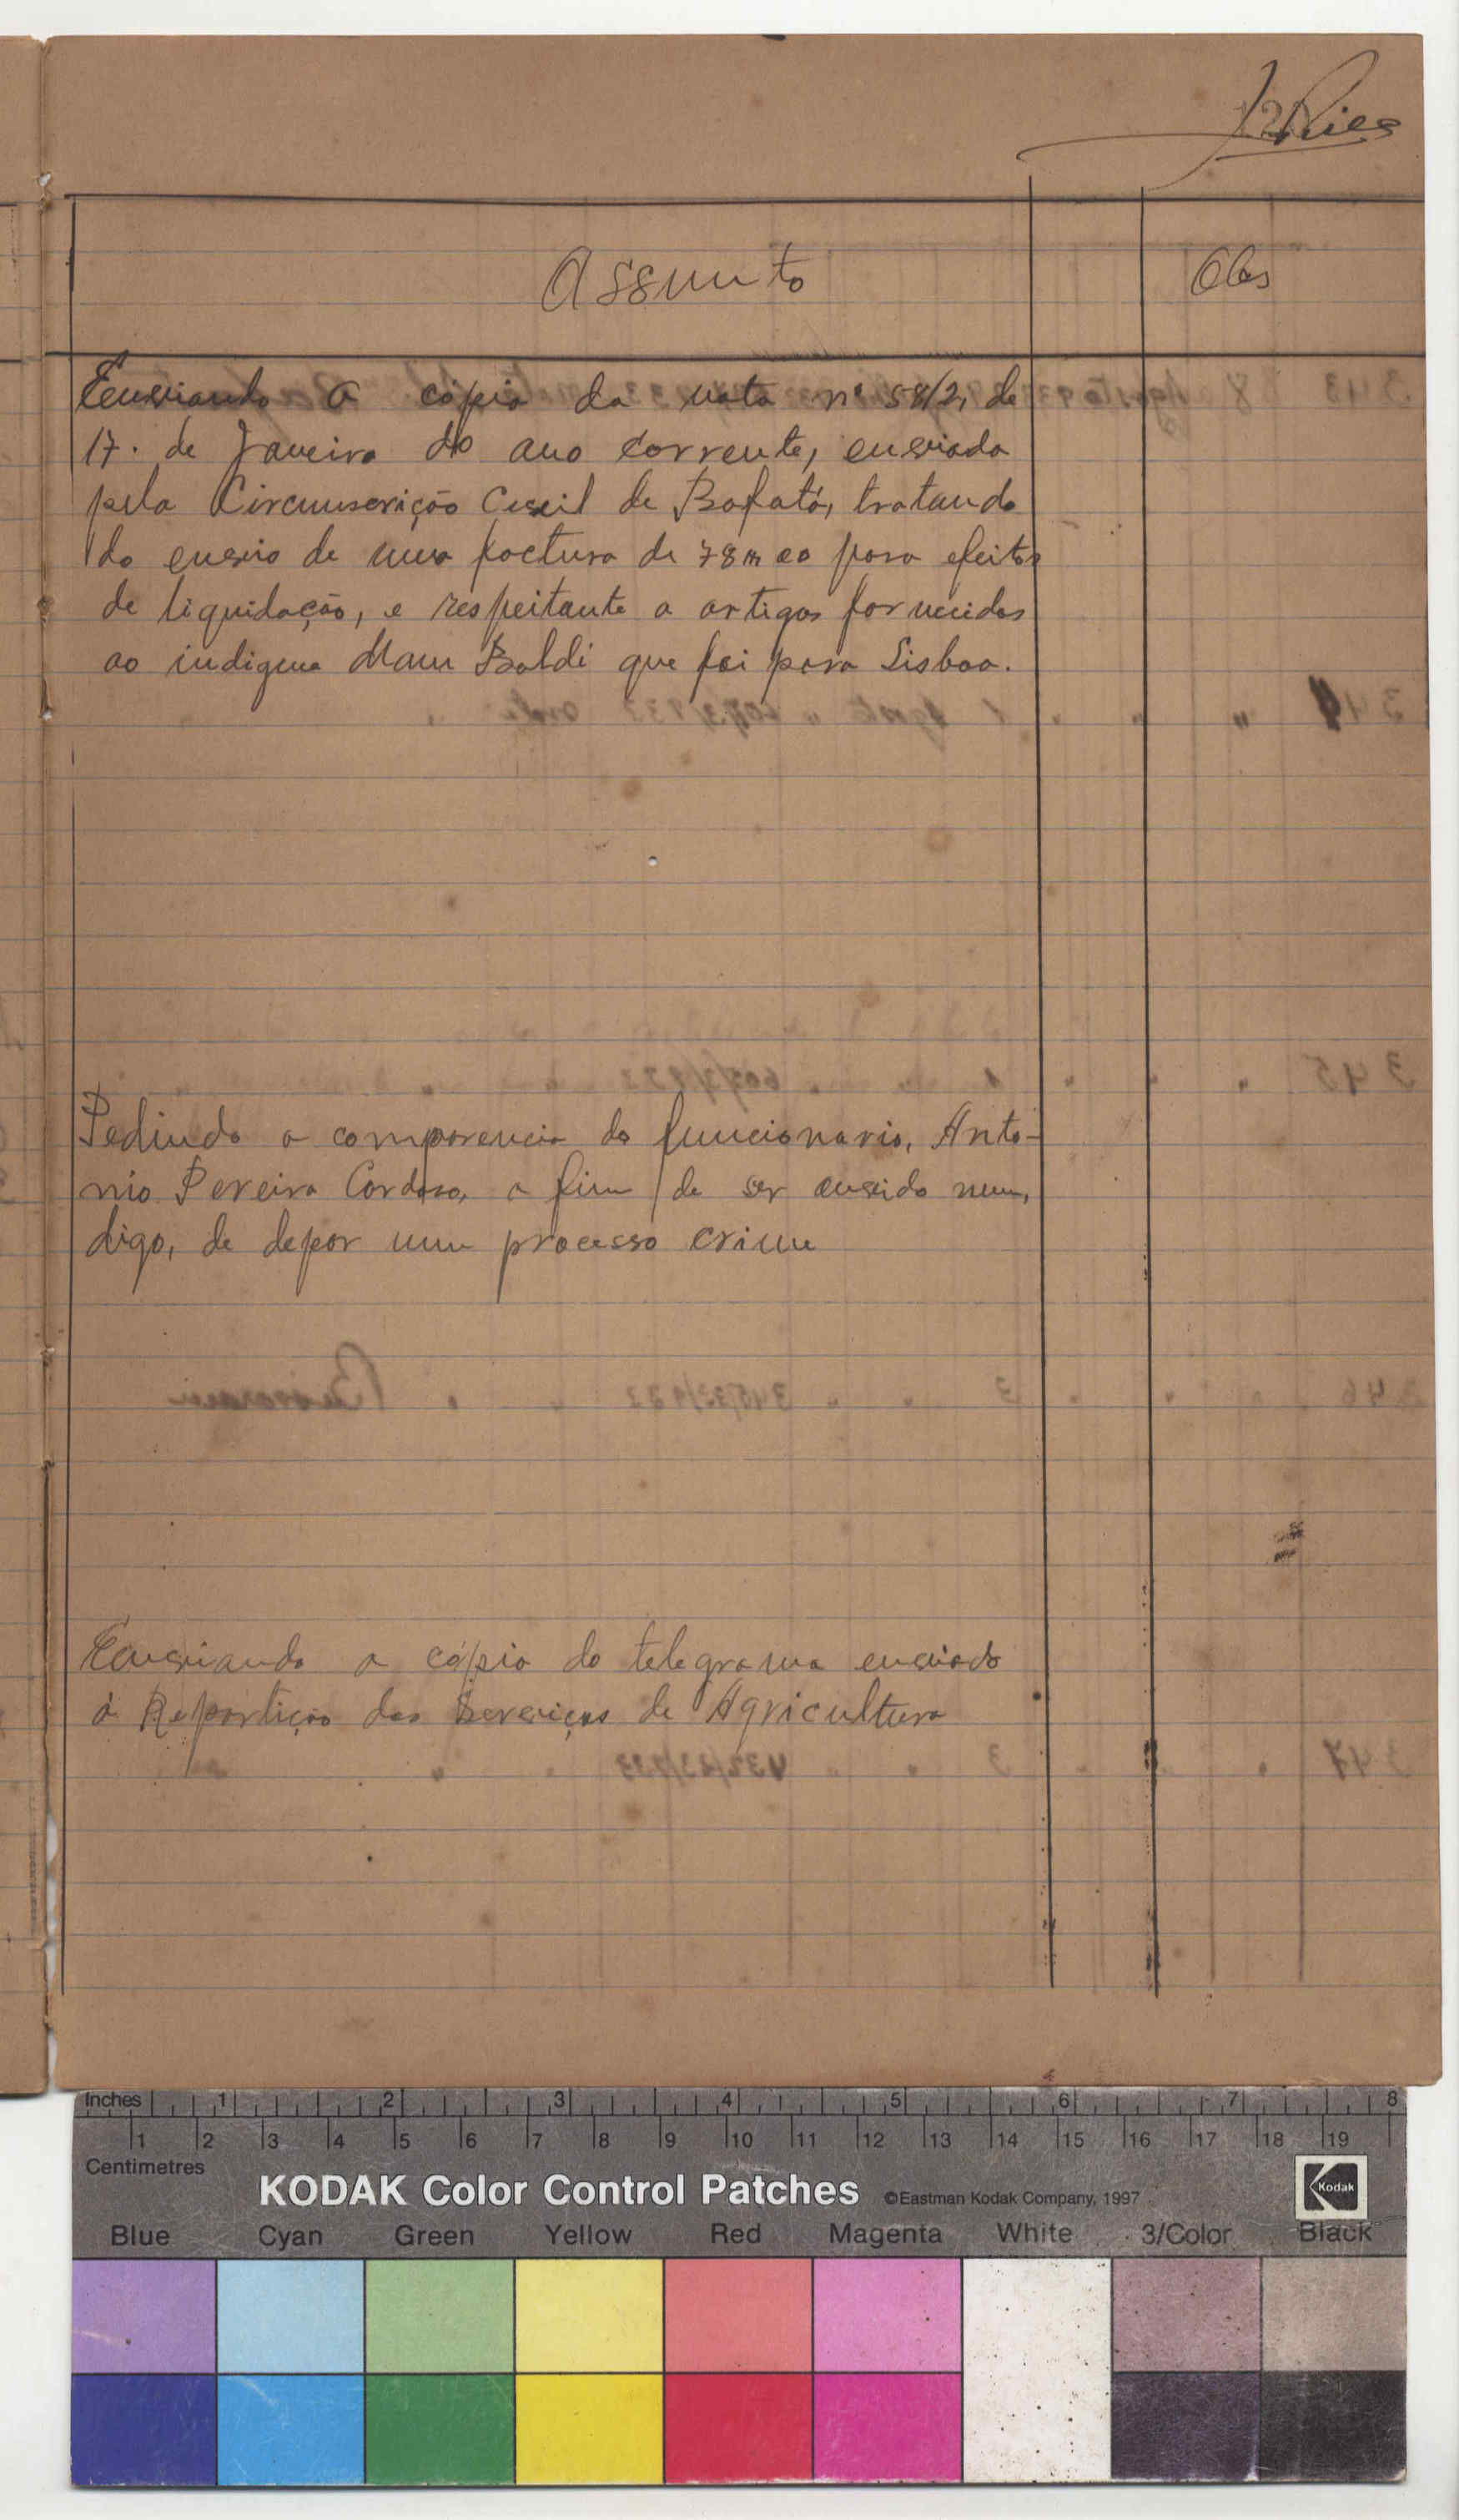 120 Pires
Assunto
Obs
Enviando a cópia da nota nº 58/2, de
17. de Janeiro do ano corrente, enviada
pela Circunscrição Civil de Bafatá, tratando
do envio de uma factura de 78m00 para efeitos
de liquidação, e respeitante a artigos fornecidos
ao indigena Mam Baldi que foi para Lisboa.
Pedindo a comparencia do funcionario, Anto-
nio Pereira Cardoso, a fim de ser ouvido num,
digo, de depor num processo crime
Enviando a cópia do telegrama enviado
á Repartição dos Serviços de Agricultura
Inches 1 2 3 4 5 6 7 8
1 2 3 4 5 6 7 8 9 10 11 12 13 14 15 16 17 18 19
Centimetres
KODAK Color Control Patches ©Eastman Kodak Company, 1997 Kodak
Blue Cyan Green Yellow Red Magenta White 3/Color Black